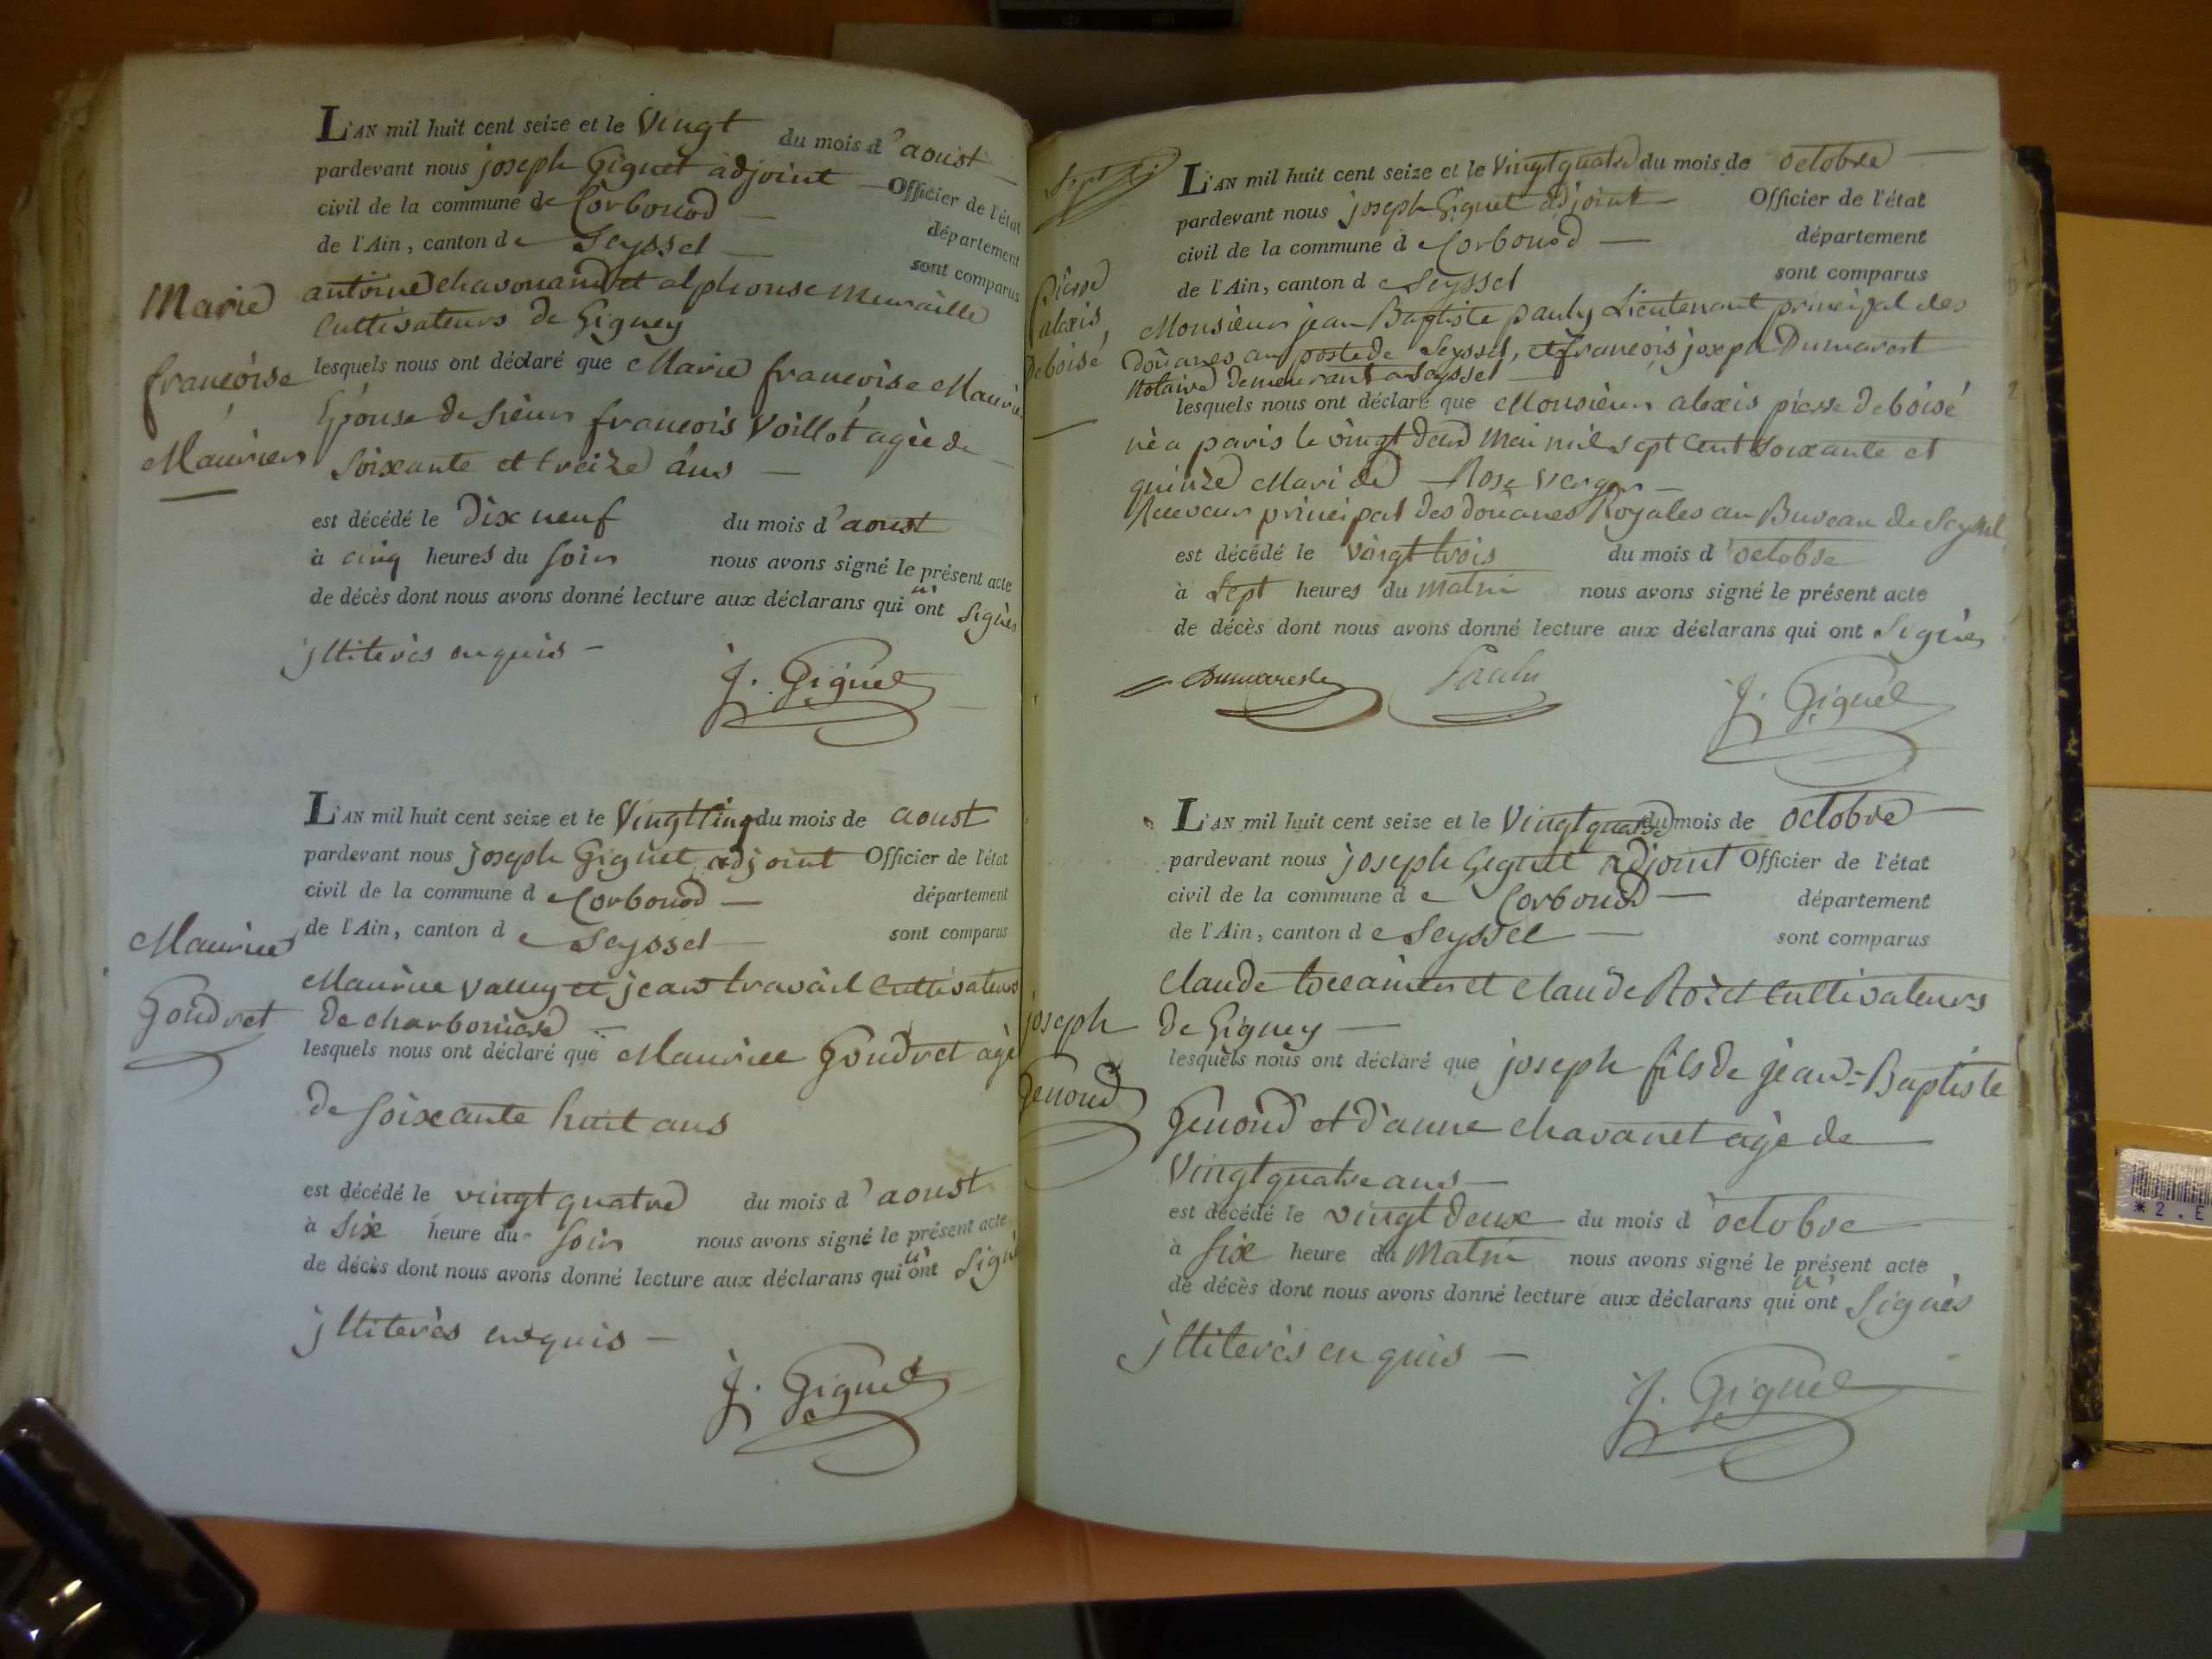 L'AN mil huit cent seize et le Vingt du mois d'aoust
pardevant nous joseph Giguet adjoint Officier de l'état
civil de la commune de Corbonod — département
de l'Ain, canton de Seyssel — sont comparus
antoine chavouand et alphonse Muraille
Cultisateurs de Gigney
Marie
françoise
Maurier
lesquels nous ont déclaré que Marie françoise Maurier
Epouse de sieur françois Voillot agèe de
soixante et treize ans —
est décédé le Dix neuf du mois d'aoust
à cinq heures du soir nous avons signé le présent acte
de décès dont nous avons donné lecture aux déclarans qui n' ont signès
jlliterès enquis —
J. Giguet
L'AN mil huit cent seize et le Vingt cinq du mois de aoust
pardevant nous joseph Giguet adjoint Officier de l'état
civil de la commune de Corbonod — département
de l'Ain, canton de Seyssel — sont comparus
Maurice
Goudret
Maurice Valley et jean travail Cultisateurs
de charboniere —
lesquels nous ont déclaré que Maurice Goudret agè
de soixante huit ans
est décédé le vingt quatre du mois d'aoust
à six heure du soir nous avons signé le présent acte
de décès dont nous avons donné lecture aux déclarans qui n' ont signè
jlliterès enquis —
J. Giguet
L'AN mil huit cent seize et le Vingt quatre du mois de octobre —
pardevant nous joseph Giguet adjoint — Officier de l'état
civil de la commune de Corbonod — département
de l'Ain, canton de Seyssel sont comparus
Pierre
alexis
Deboisé
Monsieur jean Baptiste pauly Lieutenant principal des
Douanes au poste de Seyssel, et françois joseph Dumarest
Notaire demeurant a Seyssel —
lesquels nous ont déclaré que Monsieur alexis pierre deboisé
nè a paris le vingt deux Mai mil sept cent soixante et
quinze Mari de Rose verger —
Receveur principal des douanes Royales au Bureau de Seyssel
est décédé le vingt trois du mois d'octobre
à sept heures du matin nous avons signé le présent acte
de décès dont nous avons donné lecture aux déclarans qui ont signès
Dumarest Pauly J. Giguet
L'AN mil huit cent seize et le Vingt quatre du mois de octobre —
pardevant nous joseph Giguet adjoint Officier de l'état
civil de la commune de Corbonod — département
de l'Ain, canton de Seyssel — sont comparus
joseph
Genoud
Claude et Claude Rozet Cultisateurs
de Gigney —
lesquels nous ont déclaré que joseph fils de jean-Baptiste
Genoud et d'anne chavanet agè de
Vingt quatre ans —
est décédé le vingt deux du mois d'octobre
à six heure du Matin nous avons signé le présent acte
de décès dont nous avons donné lecture aux déclarans qui n' ont signès
jlliterès enquis —
J. Giguet